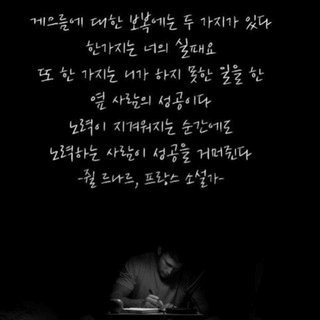 게으름에 대한 보복에는 두 가지가 있다
한가지는 너의 실패요
또 한 가지는 니가 하지 못한 일을 한
옆 사람의 성공이다
노력이 지겨워지는 순간에도
노력하는 사람이 성공을 거머쥔다
-쥘 르나르, 프랑스 소설가-